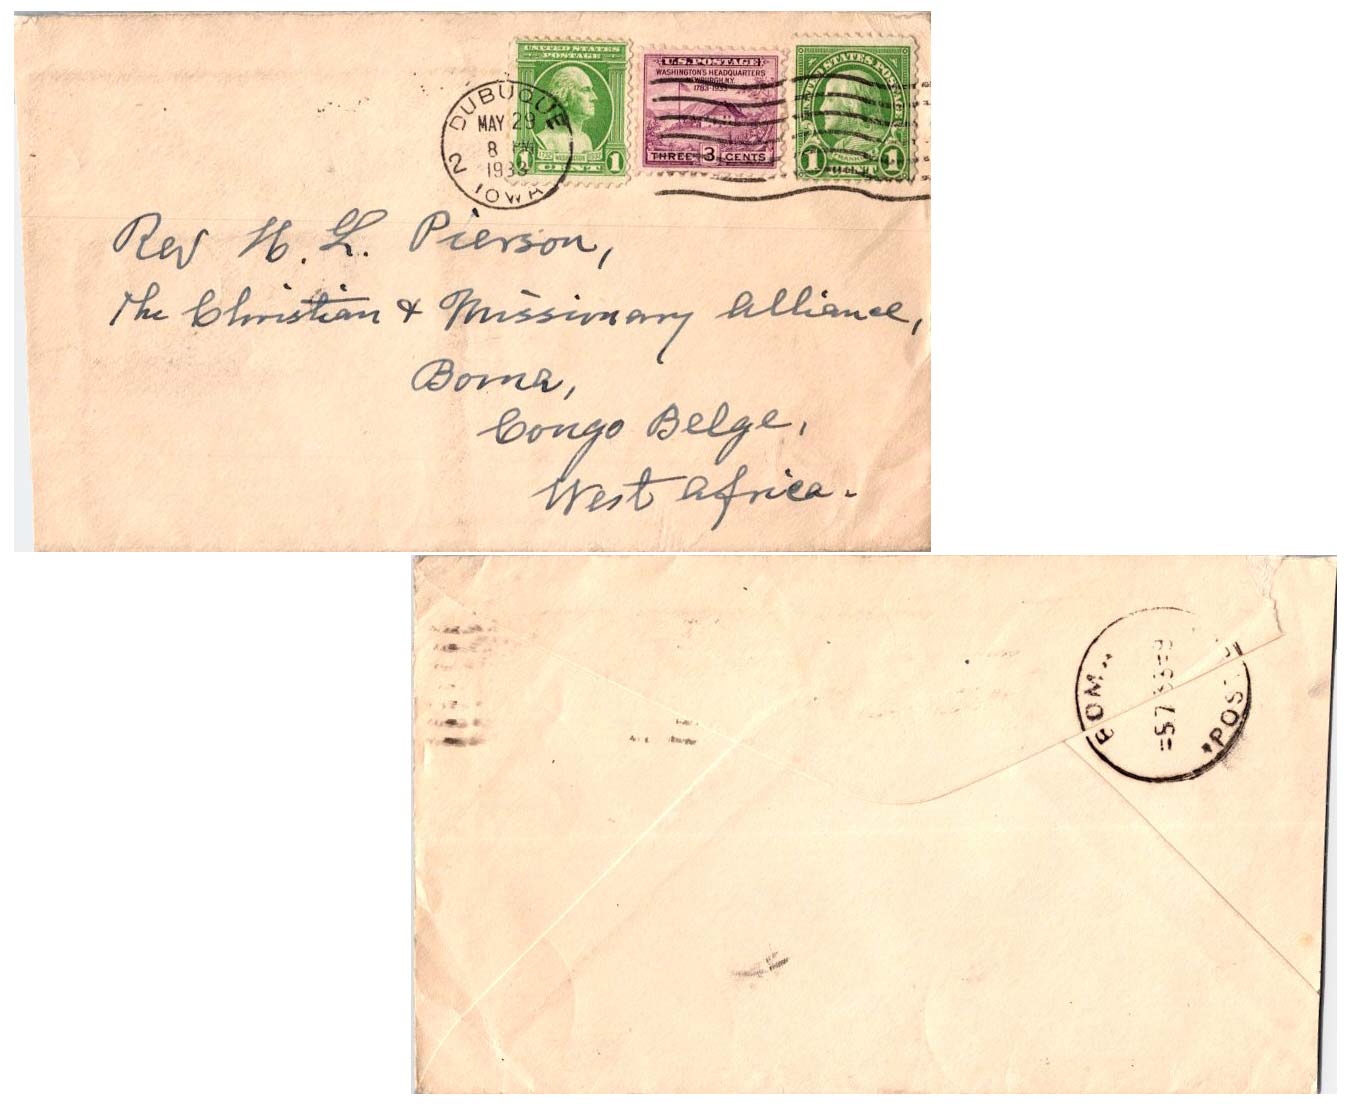 UNITED STATES
POSTAGE
1 CENT 1
U.S. POSTAGE
WASHINGTON'S HEADQUARTERS
NEWBURGH, N.Y.
1783-1933
THREE 3 CENTS
UNITED STATES POSTAGE
FRANKLIN
1 CENT 1
DUBUQUE
MAY 29
8 PM
1933
2 IOWA
Rev H. L. Pierson,
The Christian & Missionary Alliance,
Boma,
Congo Belge,
West Africa.
BOM